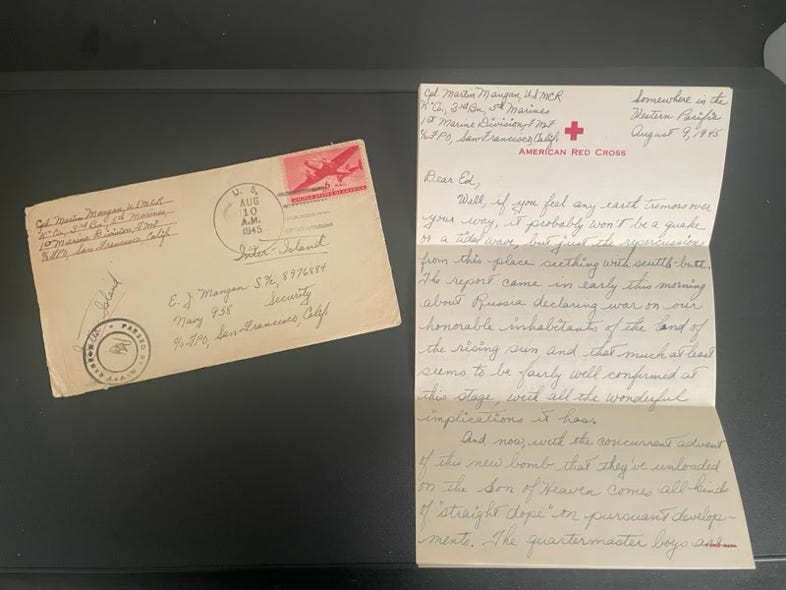 Cpl. Martin Mangan, USMCR
K Co., 3rd Bn, 5th Marines
1st Marine Division, FMF
c/o FPO, San Francisco, Calif.
U. S.
AUG
10
A.M.
1945
AIR MAIL
UNITED STATES OF AMERICA
Inter-Island
E. J. Mangan S 1/c, 8976884
Security
Navy 958
c/o FPO, San Francisco, Calif.
Island
PASSED BY NAVAL
Cpl. Martin Mangan, USMCR
K Co., 3rd Bn, 5th Marines
1st Marine Division, FMF
c/o FPO, San Francisco, Calif.
Somewhere in the
Western Pacific
August 9, 1945
AMERICAN RED CROSS
Dear Ed,
Well, if you feel any earth tremors over
your way, it probably won't be a quake
or a tidal wave, but just the repercussions
from this place seething with scuttle-butt.
The report came in early this morning
about Russia declaring war on our
honorable inhabitants of the land of
the rising sun, and that much at least
seems to be fairly well confirmed at
this stage, with all the wonderful
implications it has.
And now, with the concurrent advent
of this new bomb that they've unloaded
on the Son of Heaven comes all kinds
of "straight dope" on pursuant develop-
ments. The quartermaster boys